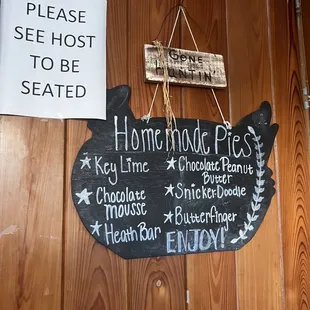 PLEASE
SEE HOST
TO BE
SEATED
GONE
HUNTIN'
HomeMade Pies
Key Lime
Chocolate
mousse
Heath Bar
Chocolate Peanut
Butter
SnickerDoodle
Butterfinger
ENJOY!